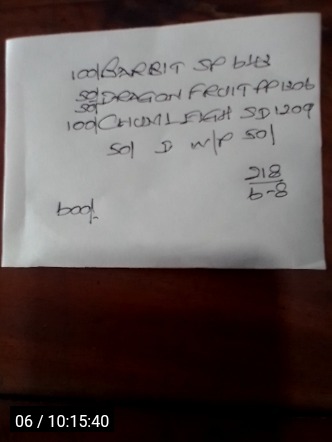 100/ BARBIT SP 613
50/ DRAGON FRUIT PP 1206
50/
100/ CHUMLEIGH SD 1209
50/ D W/P 50/
218
6-8
600/-
06 / 10:15:40